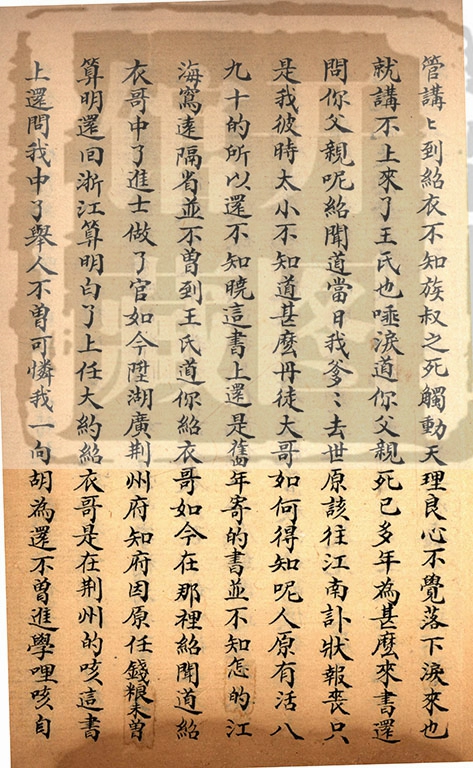 管講〻到紹衣不知族叔之死觸動天理良心不覺落下淚來也
就講不上來了王氏也唾淚道你父親死已多年為甚麽來書還
問你父親呢紹聞道當日我爹〻去世原該往江南訃狀報喪只
是我彼時太小不知道甚麽丹徒大哥如何得知呢人原有活八
九十的所以還不知曉這書上還是舊年寄的書並不知怎的江
海窵遠隔省並不曾到王氏道你紹衣哥如今在那裡紹聞道紹
衣哥中了進士做了官如今陞湖廣荆州府知府因原任錢粮未曾
算明還回浙江算明白了上任大約紹衣哥是在荆州的咳這書
上還問我中了舉人不曾可憐我一向胡為還不曾進學哩咳自